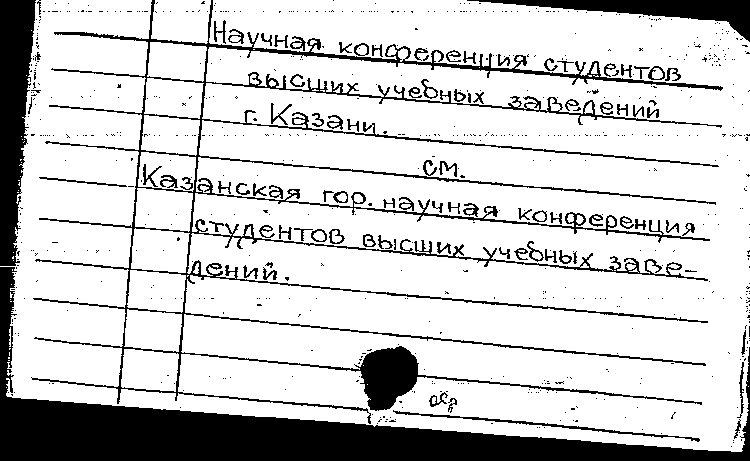 Научная конференция студентов
высших учебных заведений
г. Казани.
см.
Казанская гор. научная конференция
студентов высших учебных заве-
дений.